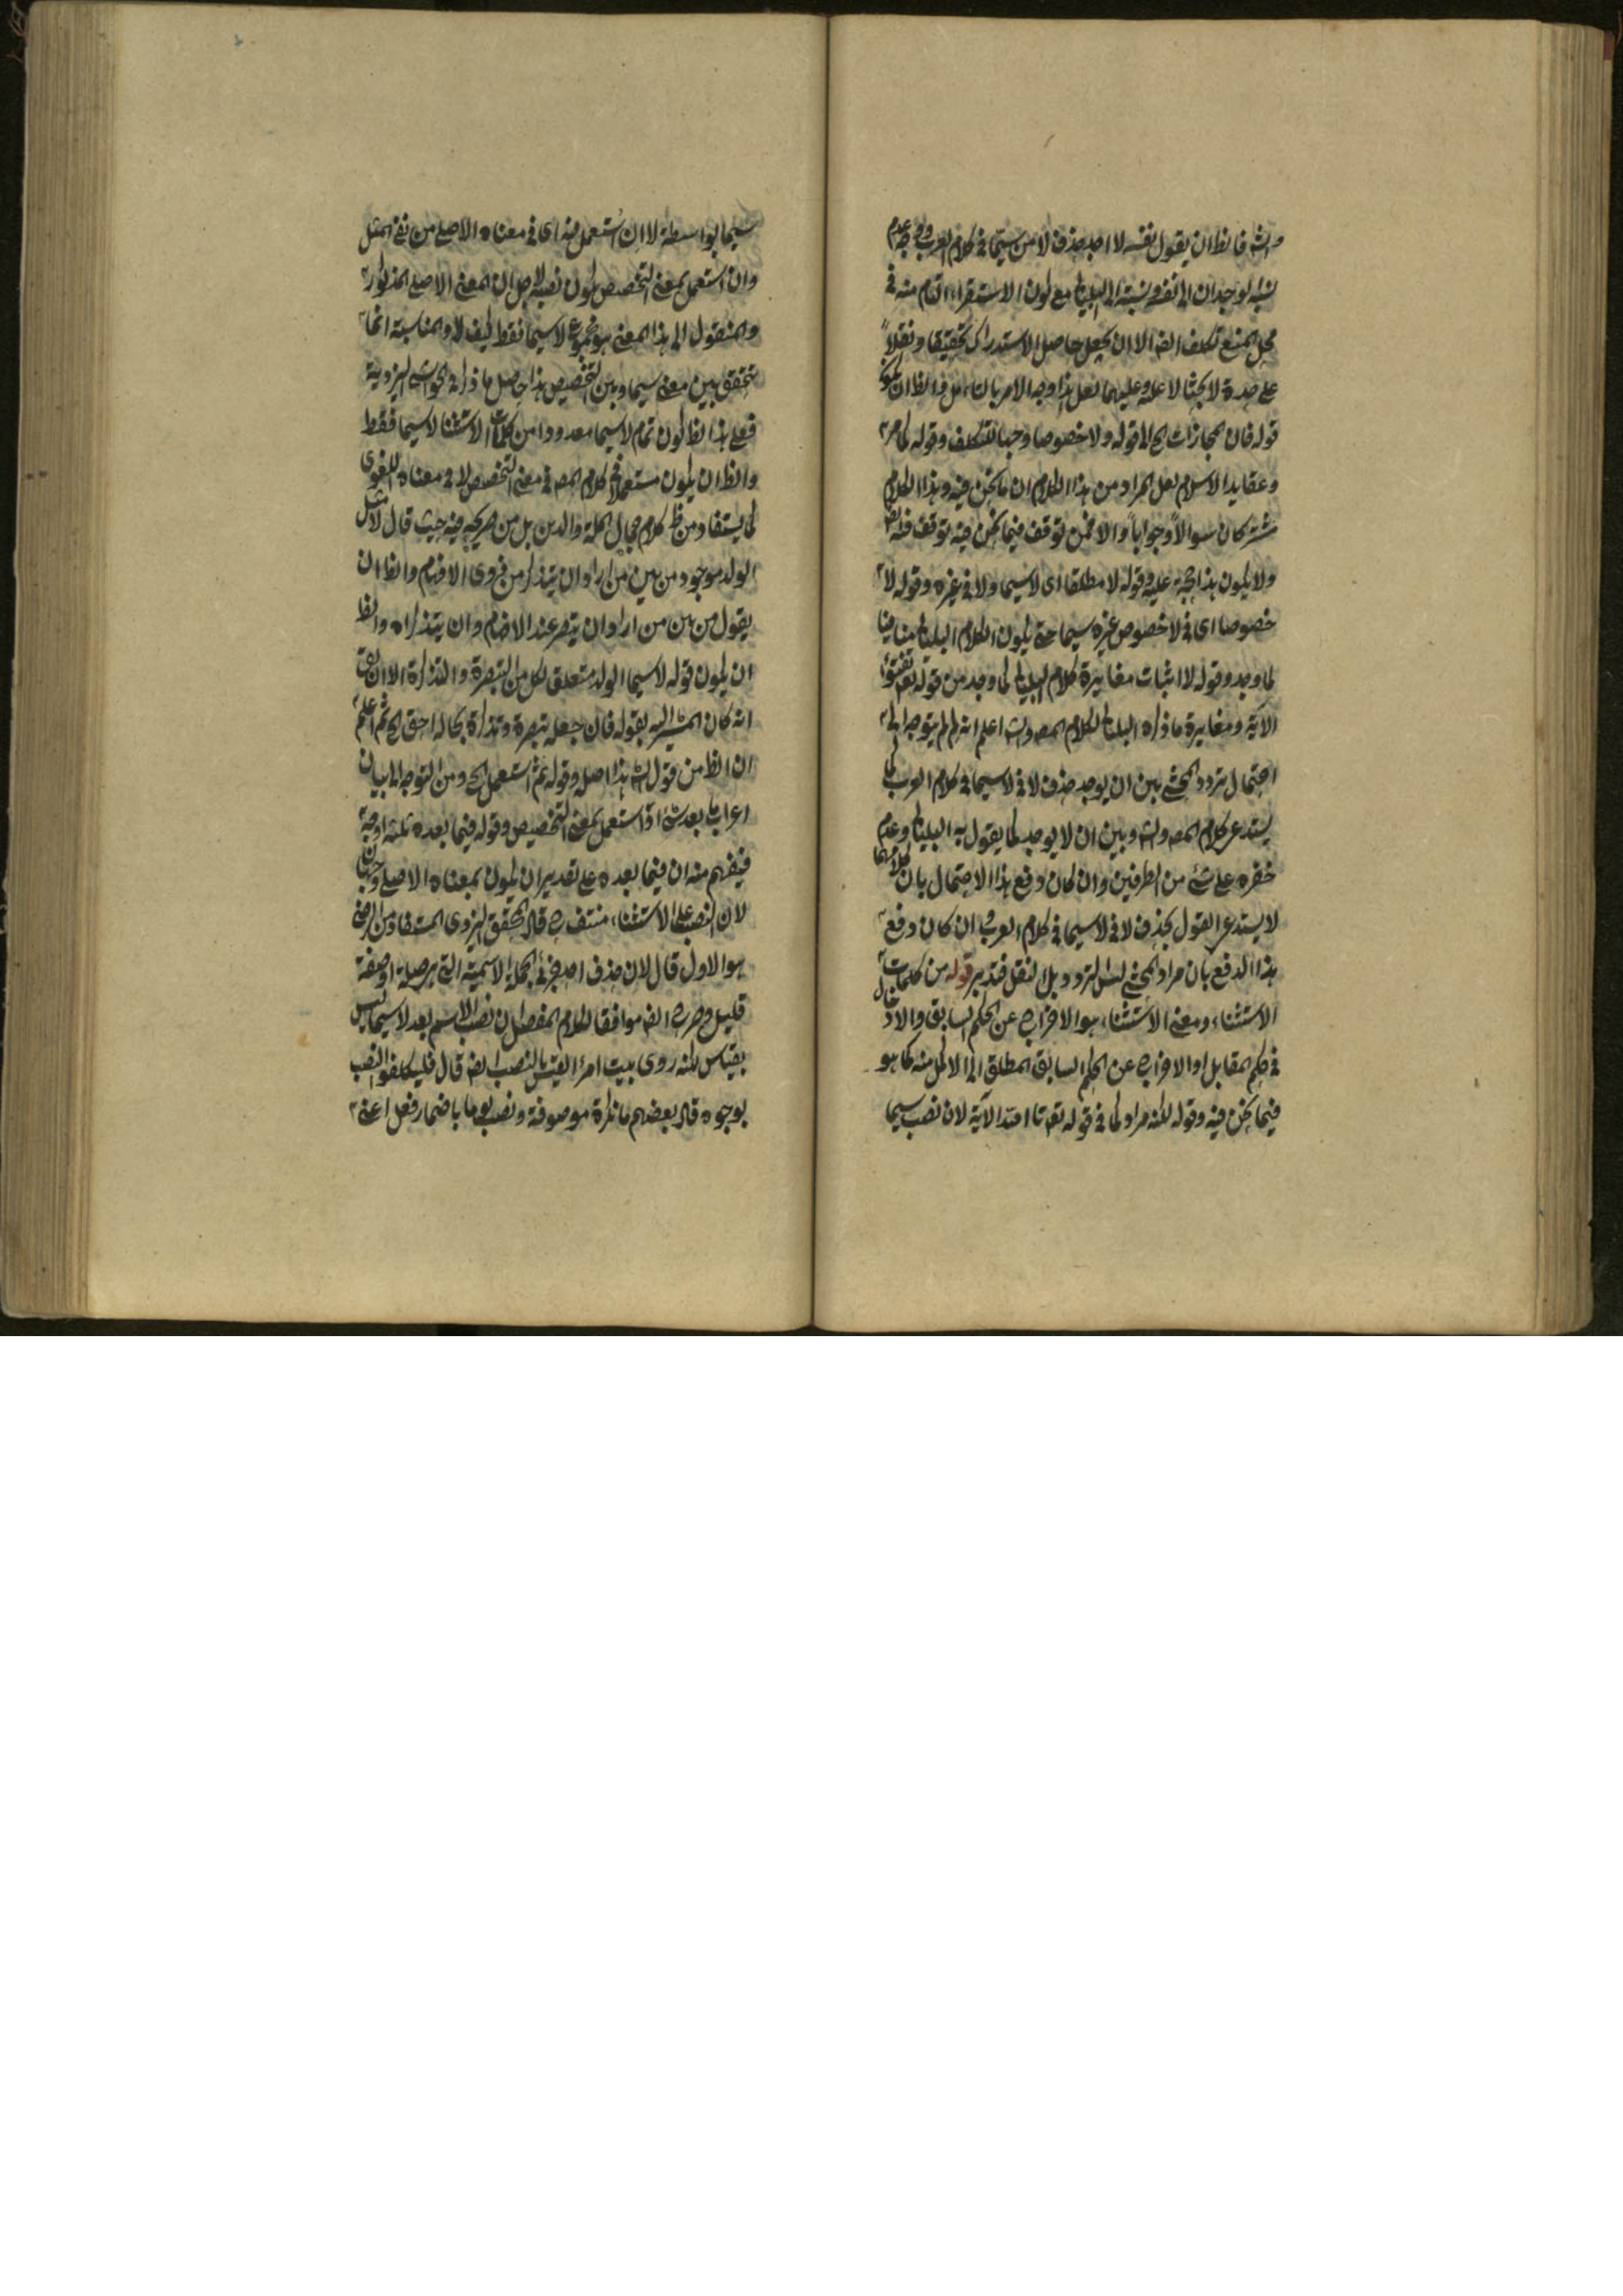 والش فالظ ان يقول نفسه لا احد حذف لا من سيما في كلام العرب ووجه عدم
نسبة لوجدان الى نفسه ونسبته الى البليناني مع كون الاستقراء التام منه في
محل المنع تكلف الا ان يجعل حاصل الاستدراك تحقيقا ونقلا
على حدة لا بحثا لا عليه وعليهما لعل هذا وجه الامر بالتامل فالظ ان يكون
قوله فان المجازات الخ الى قوله ولا خصوصا وجها للتكلف وقوله كما مر
وعقايد الاسلام لعل المراد من هذا الكلام ان ما نحن فيه وهذا الكلام
مشتركان سوالا وجوابا والا فمن توقف فيما نحن فيه توقف فيه ايضا
ولا يكون هذا حجة عليه وقوله لا مطلقا اى لا سيما ولا في غيره وقوله لا
خصوصا اى في لا خصوص غيره سيما حتى يكون الكلام البليناني منافيا
لما وجد وقوله لا اثبات مغايرة كلام البليناني لما وجد من قوله تعه تفتؤا
الاية ومغايرة ما ذكره البليناني لكلام المص والش اعلم انه لم لم يتوجه الى
احتمال تردد المحشي بين ان يوجد حذف لا في لا سيما في كلام العرب كما
يستدعى كلام المص والش وبين ان لا يوجد كما يقول به البليناني وعدم
خفره على شئ من الطرفين وان كان دفع هذا الاحتمال بان كلامهما
لا يستدعى القول بحذف لا في لا سيما في كلام العرب وان كان دفع
هذا الدفع بان مراد المحشي ليس التردد بل النقل فتدبر قوله من كلمات
الاستثناء ومعنى الاستثناء هو الاخراج عن الحكم السابق والادخال
في حكم المقابل او الاخراج عن الحكم السابق المطلق الى الاكمل منه كما هو
فيما نحن فيه وقوله لكنه مراد كما في قوله تعه تا الله الآية لان نصب سيما
سيما بواسطة لا ان استعمل فيه اى في معناه الاصلي من نفي المثل
وان استعمل بمعنى التخصيص يكون نصبه لاجل ان المعنى الاصلي المذكور
والمنقول الى هذا المعنى هو مجموع لا سيما فقط كيف لا والمناسبة انما
تتحقق بين معنى سيما وبين التخصيص هذا حاصل ما ذكره في الحواشي اليزدية
فعلى هذا الظ كون تمام لا سيما معدودا من كلمات الاستثنا لا سيما فقط
والظ ان يكون مستعملا في كلام المص في معنى التخصيص لا في معناه اللغوى
كما يستفاد من ظ كلام جمال الملة والدين بل من صريحه فيه حيث قال لا مثل
الولد موجود من بين من اراد ان يتذكر من ذوى الافهام والظ ان
يقول من بين من اراد ان يتبصر عند الافهام وان يتذكر اه والظ
ان يكون قوله لا سيما الولد متعلق لكل من التبصرة والتذكرة الا ان يقال
انه كان المشير اليه بقوله فان جعله تبصرة وتذكرة بحاله احق الخ ثم اعلم
ان الظ من قول الش هذا اصله وقوله ثم استعمل الخ ومن التوجه الى بيان
اعراب ما بعد شئ اذا استعمل بمعنى التخصيص وقوله فيما بعده ثلثة اوجه
فيفهم منه ان فيما بعده على تقدير ان يكون بمعناه الاصلي وجهان
لان النصب على الاستثناء منتف ح قال المحقق اليزدى المستفاد من الرضى
هو الاول قال لان حذف احد جزئى الجملة الاسمية التي هي صلة او صفة
قليل وصرح موافقا لكلام المفصل ان نصب الاسم بعد لا سيما ليس
بقياس لكنه روى بيت امرء القيس بالنصب ايضا قال فليتكلفوا لنصب
بوجوه قال بعضهم ما نكرة موصوفة ونصب يوما باضمار فعل اعنى